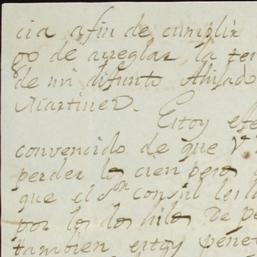 cia afin de cumplir
go de arreglar la te
de mi difunto Amado
Martinez.
Estoy
convencido de que V
perder los cien pesos
que el Sor consul
por los dos hilos de pe
tambien estoy pene